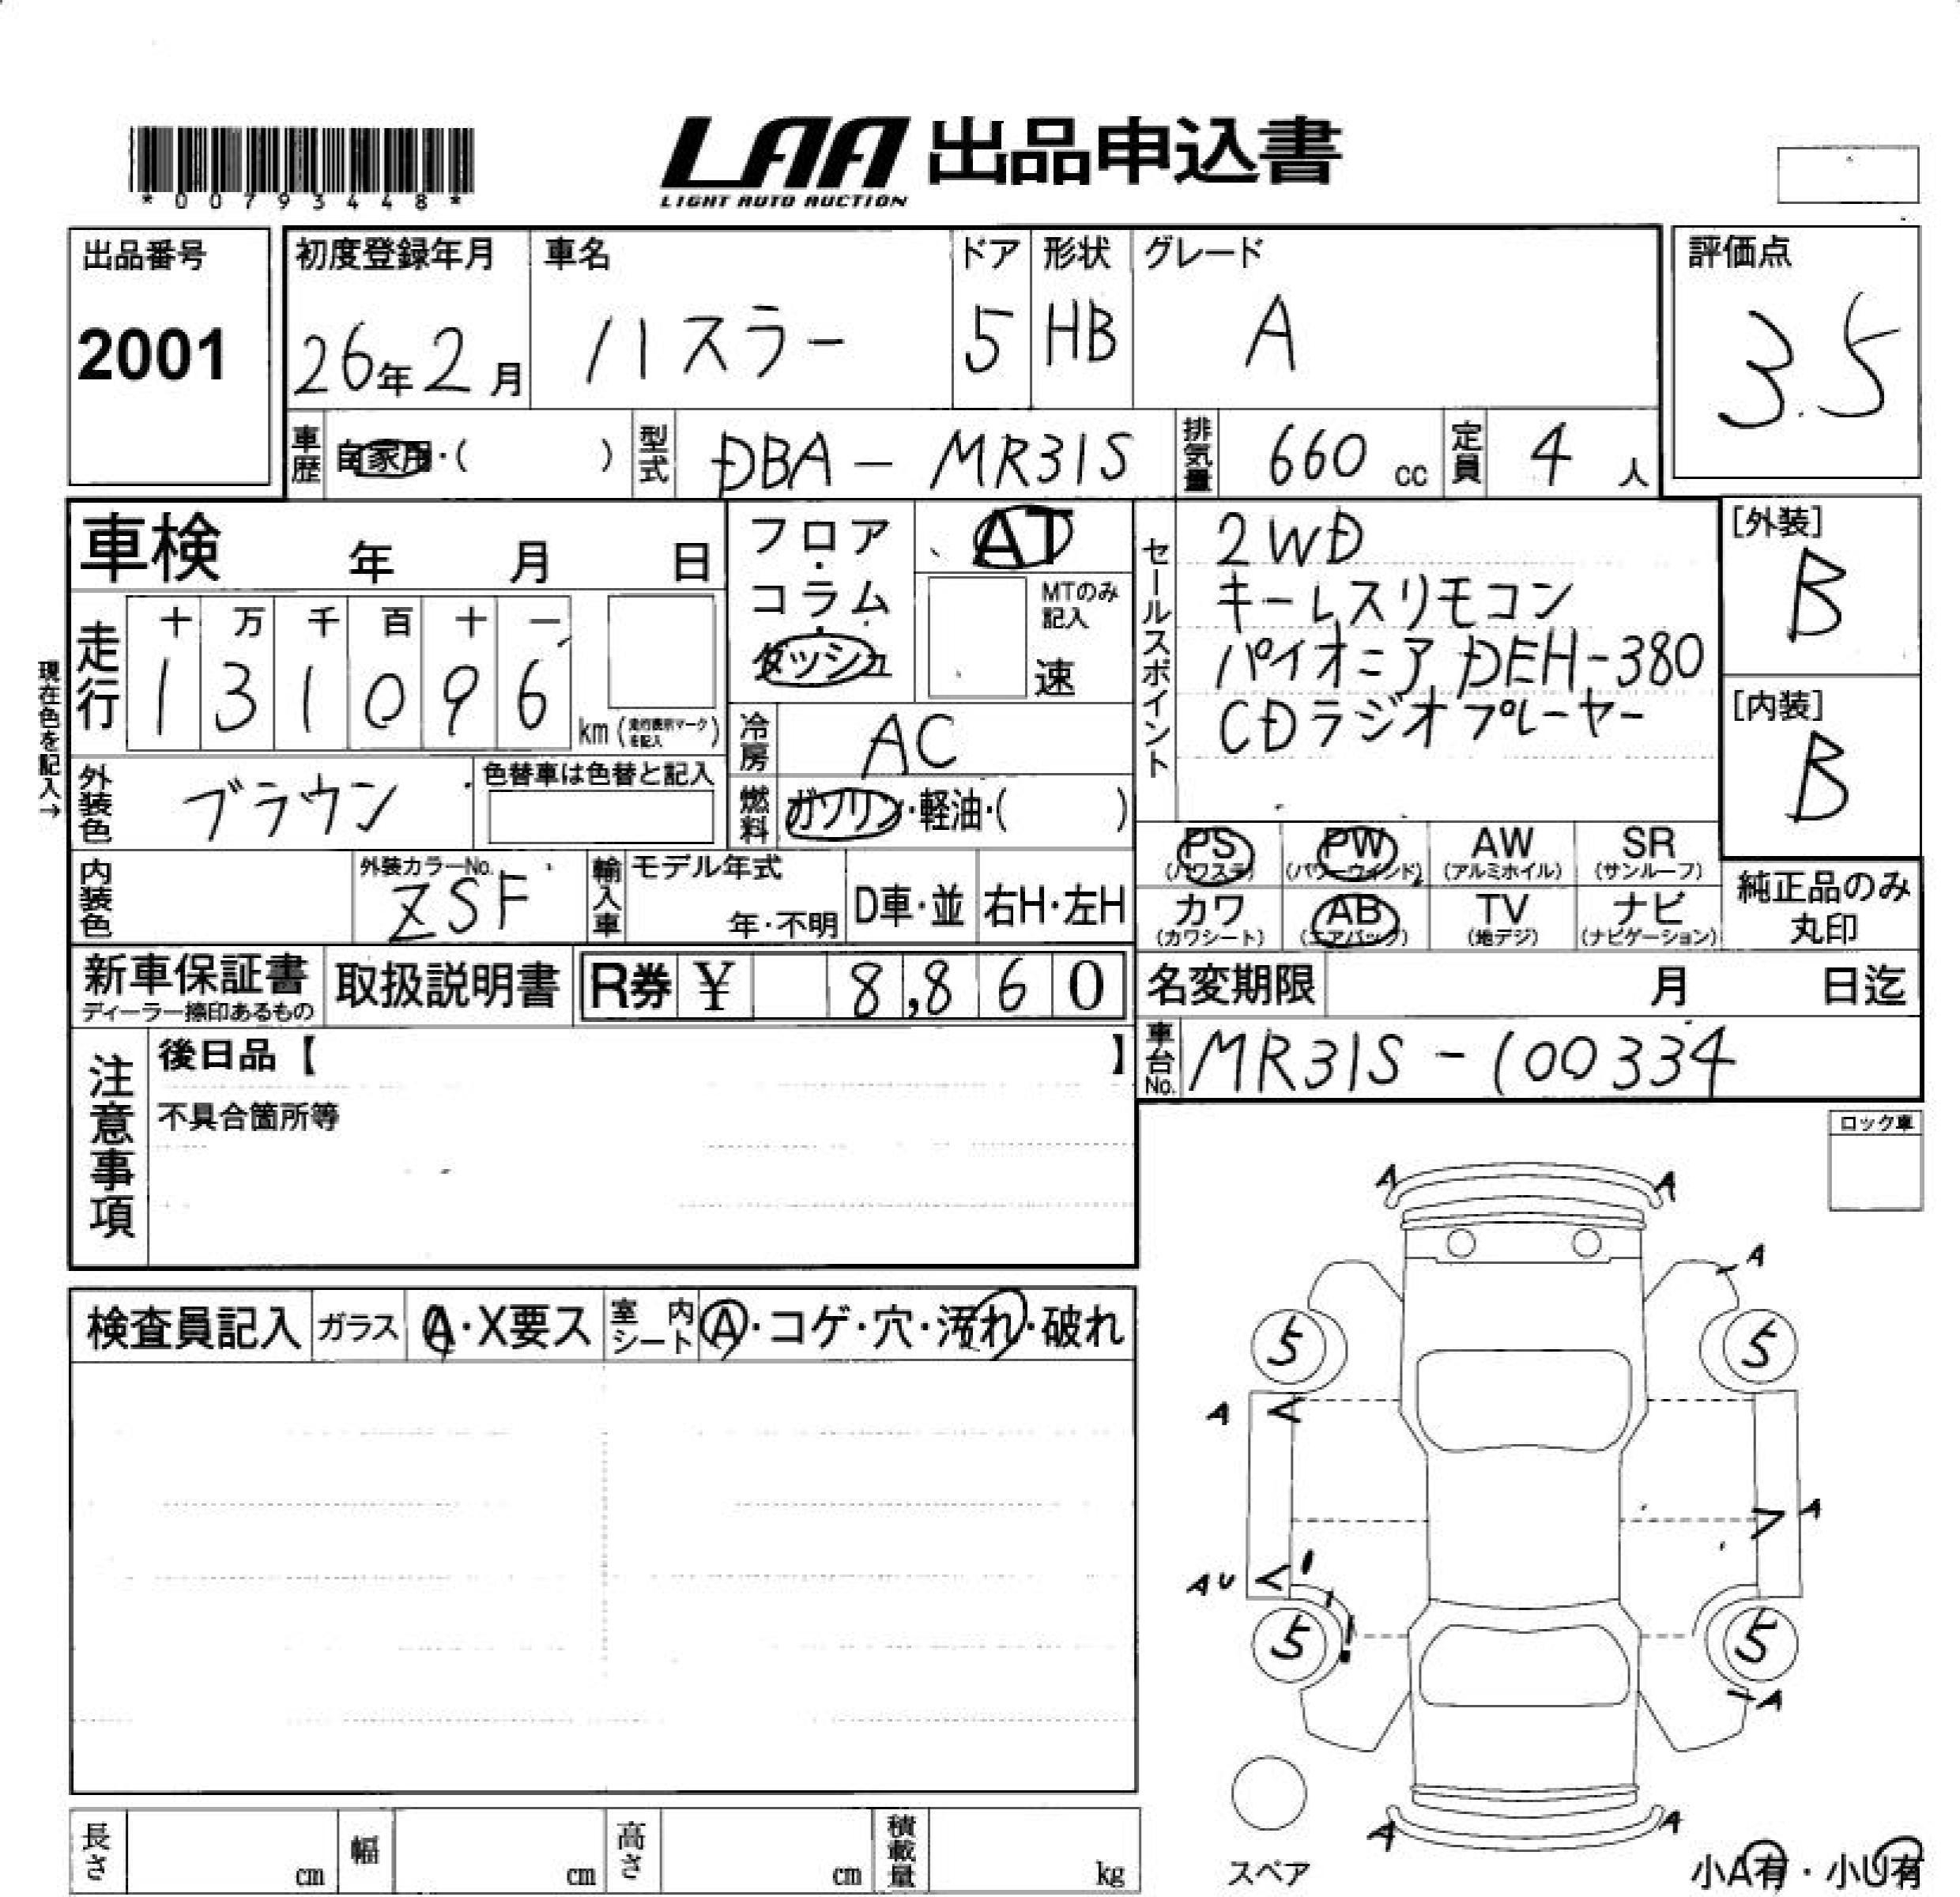 *00793448*
LAA 出品申込書
LIGHT AUTO AUCTION
出品番号
2001
初度登録年月
26年2月
車名
ハスラー
ドア
5
形状
HB
グレード
A
評価点
3.5
車歴
自家用・( )
型式
DBA-MR31S
排気量
660 cc
定員
4 人
車検 年 月 日
フロア・コラム・ダッシュ
AT
MTのみ記入
速
セールスポイント
2WD
キーレスリモコン
パイオニア DEH-380
CDラジオプレーヤー
[外装]
B
[内装]
B
現在色を記入→
走行
十 万 千 百 十 一
1 3 1 0 9 6
km (走行表示マークを記入)
冷房
AC
外装色
ブラウン
色替車は色替と記入
燃料
ガソリン・軽油・( )
PS (パワステ)
PW (パワーウインド)
AW (アルミホイル)
SR (サンルーフ)
カワ (カワシート)
AB (エアバック)
TV (地デジ)
ナビ (ナビゲーション)
純正品のみ丸印
内装色
外装カラーNo.
ZSF
輸入車
モデル年式
年・不明
D車・並
右H・左H
新車保証書
ディーラー捺印あるもの
取扱説明書
R券 ¥ 8,860
名変期限 月 日迄
車台No.
MR31S-100334
注意事項
後日品【 】
不具合箇所等
ロック車
検査員記入
ガラス
A・X要ス
室内シート
A・コゲ・穴・汚れ・破れ
A A
A
5 5
A
A
AU
5 5
A
A A
スペア
小A有・小U有
長さ cm
幅 cm
高さ cm
積載量 kg